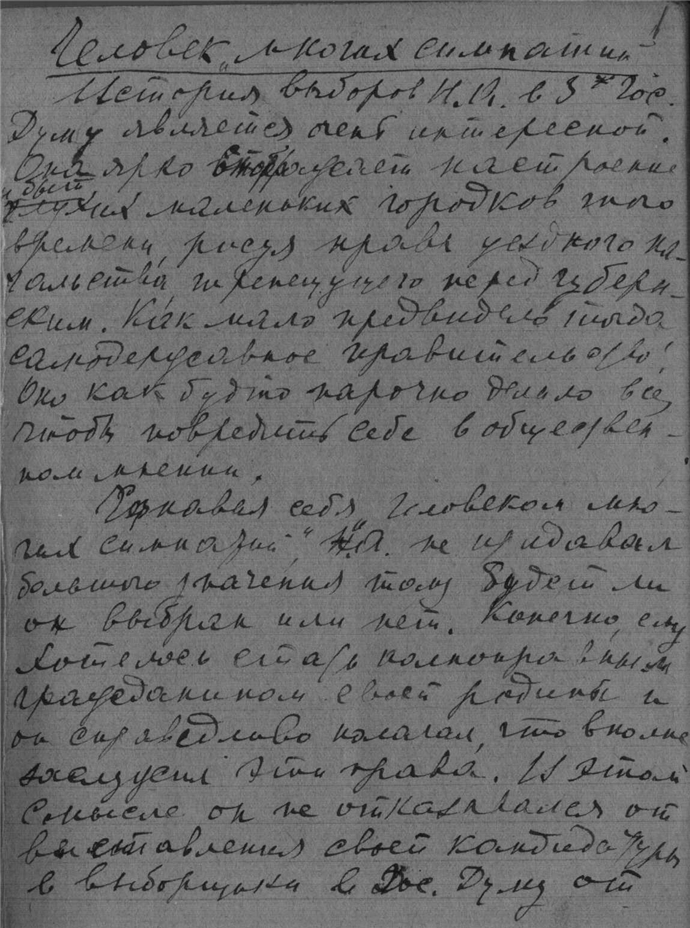 1
Человек „многих симпатий"
История выборов Н.А. в 3ю Гос.
Думу является очень интересной.
Она ярко отображает настроение
и быт
глухих маленьких городков того
времени, рисуя нравы уездного на-
чальства, трепещущего перед губерн-
ским. Как мало предвидело тогда
самодержавное правительство!
Оно как будто нарочно делало все,
чтобы повредить себе в обществен-
ном мнении.
Сознавая себя „человеком мно-
гих симпатий", Н.А. не придавал
большого значения тому будет ли
он выбран или нет. Конечно, ему
хотелось стать полноправным
гражданином своей родины и
он справедливо полагал, что вполне
заслужил эти права. В этом
смысле он не отказывался от
выставления своей кандидатуры
в выборщики в Гос. Думу от